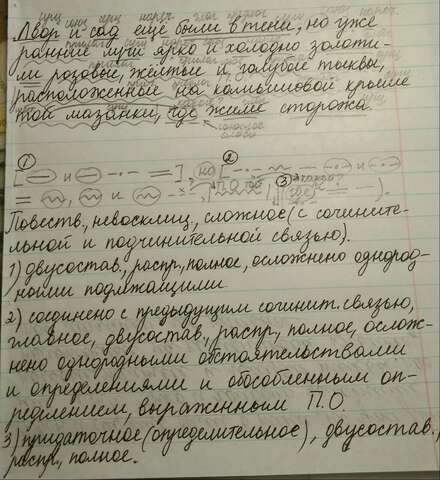 сущ. сущ. нареч. глаг. предлог сущ. союз нареч.
Двор и сад ещё были в тени, но уже
ранние лучи ярко и холодно золоти-
ли розовые, жёлтые и голубые тыквы,
расположенные на камышовой крыше
той мазанки, где жили сторожа.
союзное
слово
① ②
[ и ], но [ и
, и П.О. той ], ③ какой? (где ).
Повеств., невосклиц., сложное (с сочините-
льной и подчинительной связью).
1) двусостав., распр., полное, осложнено однород-
ными подлежащими.
2) соединено с предыдущим сочинит. связью,
главное, двусостав., распр., полное, ослож-
нено однородными обстоятельствами
и определениями и обособленным оп-
ределением, выраженным П.О.
3) придаточное (определительное), двусостав.,
распр., полное.